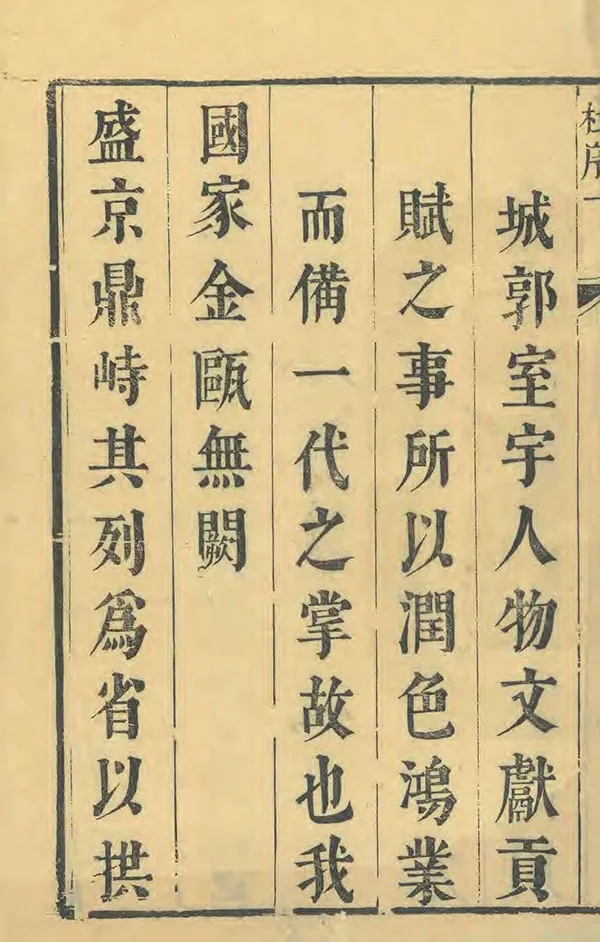 城郭室宇人物文獻貢
賦之事所以潤色鴻業
而備一代之掌故也我
國家金甌無闕
盛京鼎峙其列爲省以拱